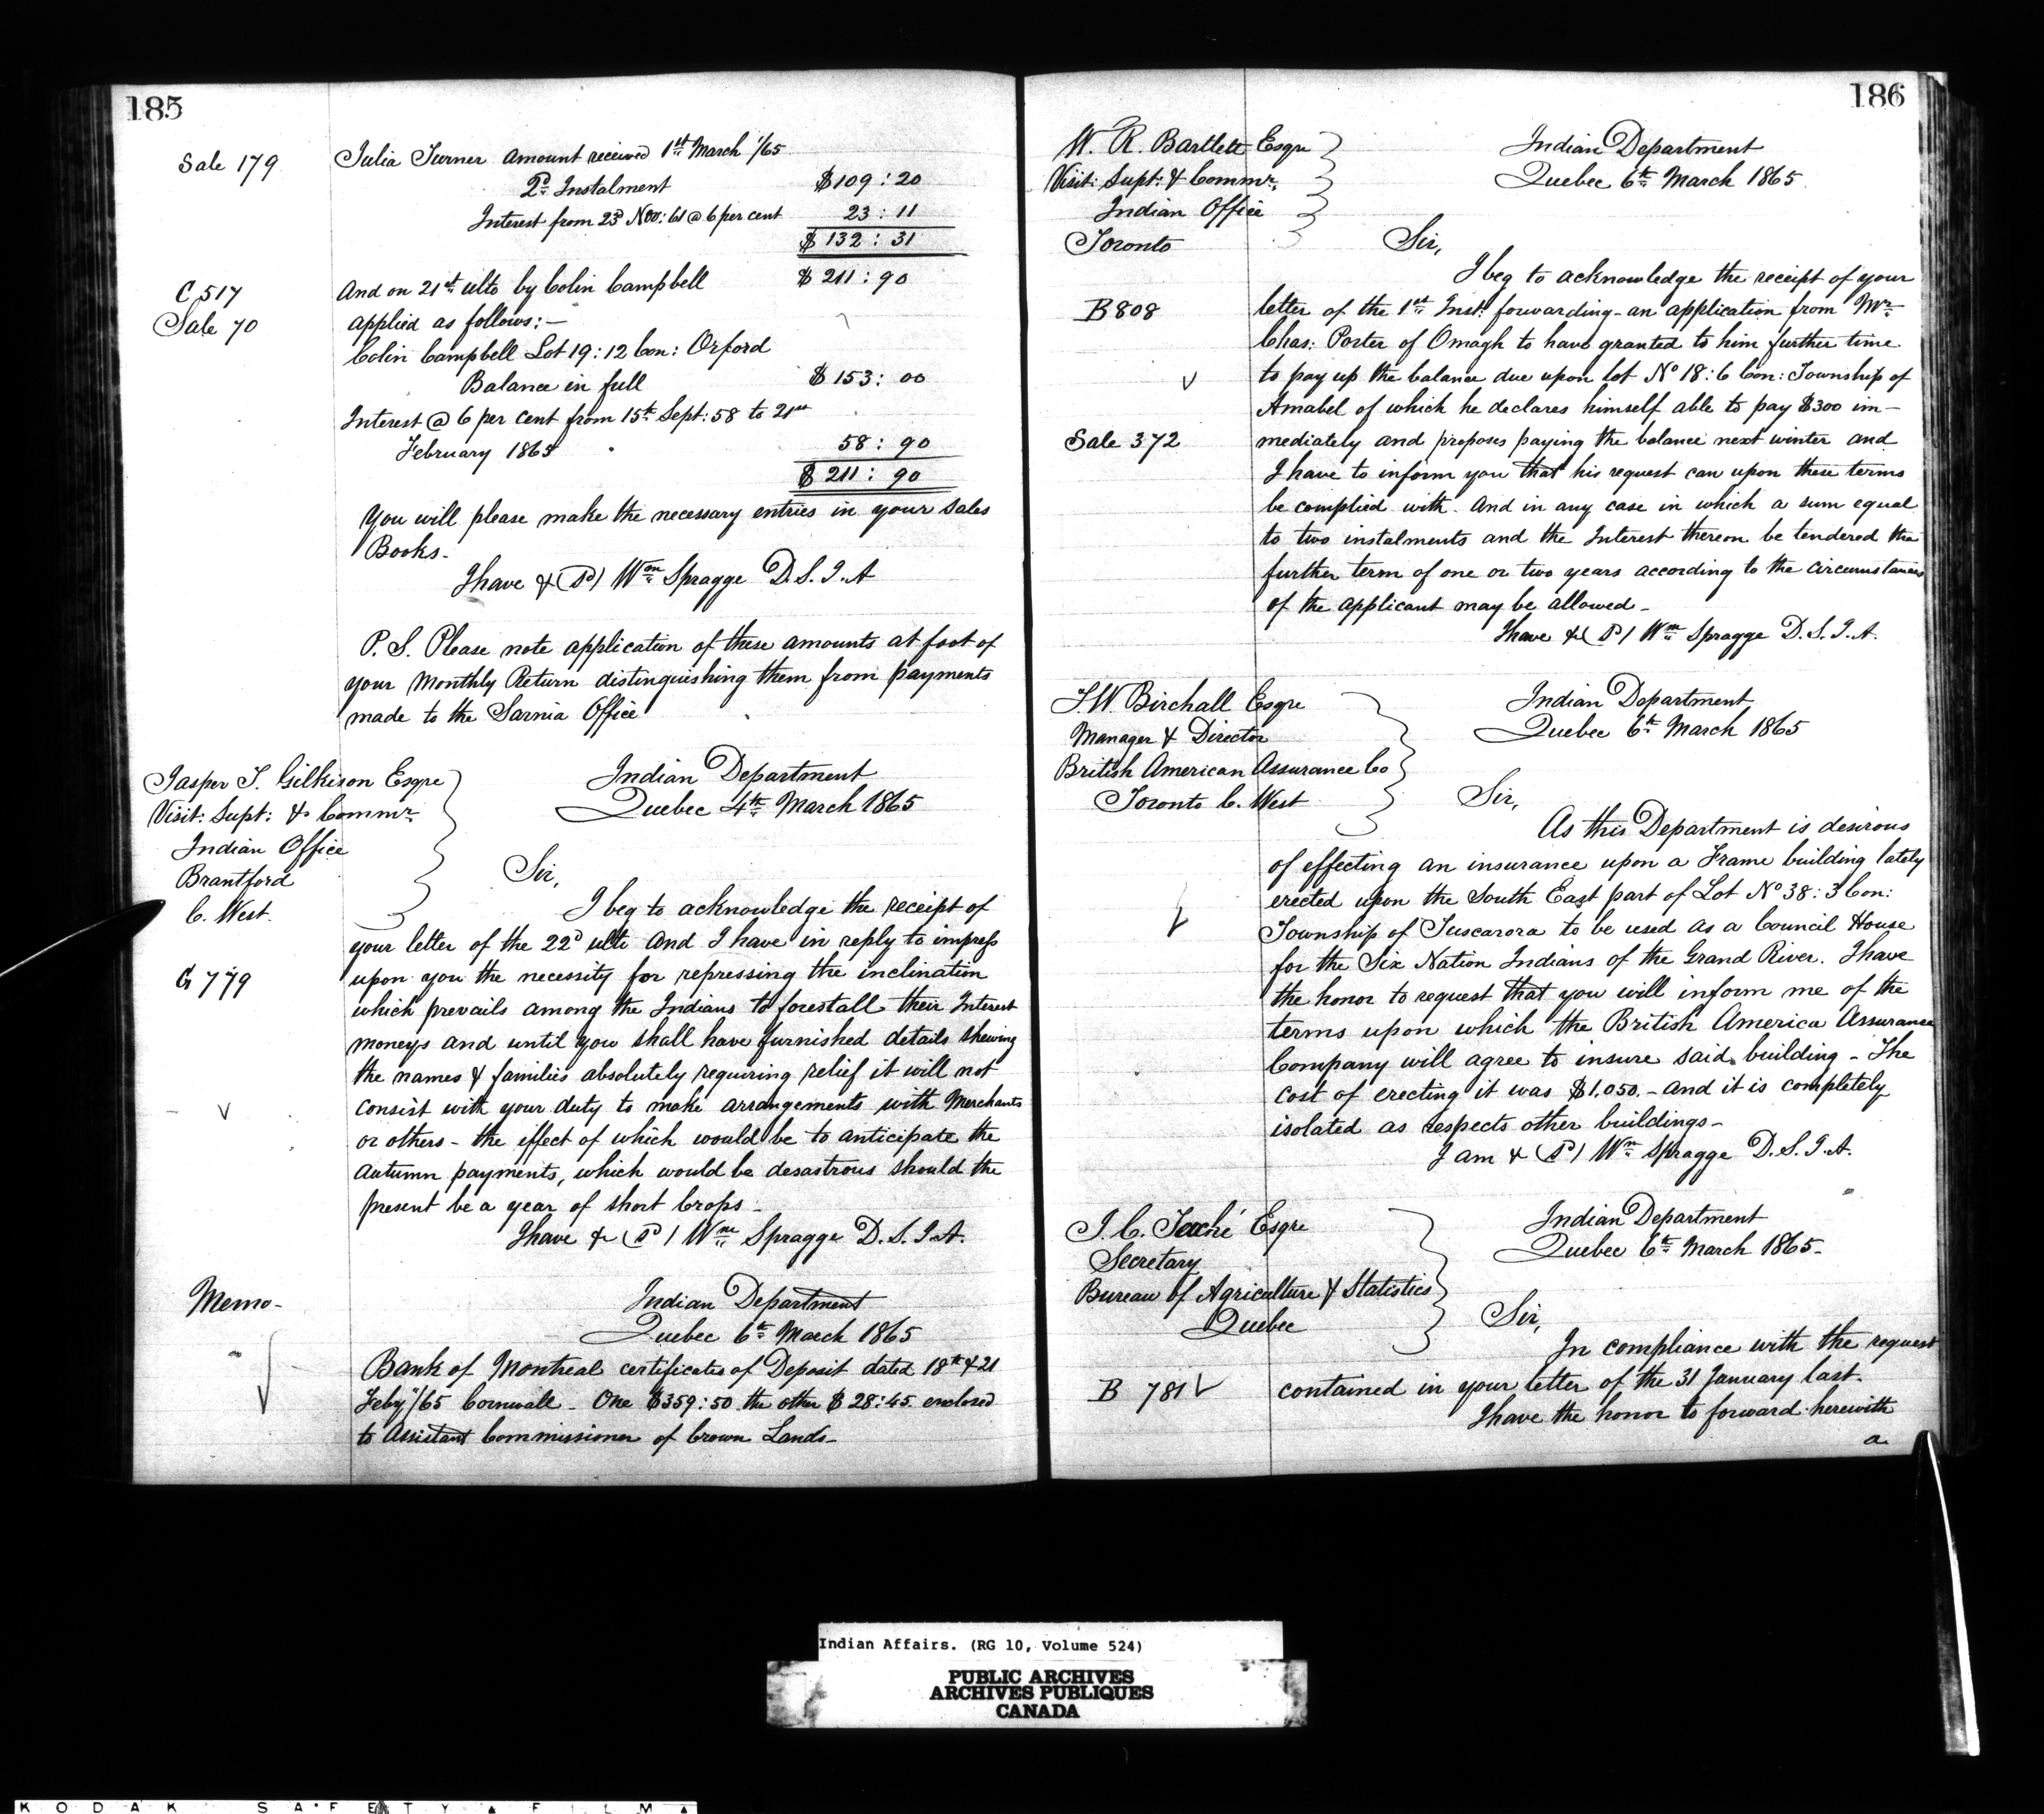 185
Sale 179
Julia Turner amount received 1st March '/65
2d Instalment $109:20
Interest from 23d Nov: 61 @ 6 per cent 23:11
$132:31
C 517
And on 21st ulto by Colin Campbell $211:90
Sale 70
applied as follows:—
Colin Campbell Lot 19:12 Con: Orford
Balance in full $153:00
Interest @ 6 per cent from 15th Sept: 58 to 21st
February 1865 58:90
$211:90
You will please make the necessary entries in your Sales
Books—
I have & (Sd) Wm Spragge D.S.I.A
P.S. Please note application of these amounts at foot of
your Monthly Return distinguishing them from payments
made to the Sarnia Office
Jasper T. Gilkison Esqre
Visit: Supt: & Commr.
Indian Office
Brantford
C. West.
Indian Department
Quebec 4th March 1865
Sir,
I beg to acknowledge the receipt of
your letter of the 22d ulto And I have in reply to impress
G 779
upon you the necessity for repressing the inclination
which prevails among the Indians to forestall their Interest
moneys and until you shall have furnished details shewing
the names & families absolutely requiring relief it will not
consist with your duty to make arrangements with Merchants
or others – the effect of which would be to anticipate the
Autumn payments, which would be desastrous should the
present be a year of short Crops—
I have & (Sd) Wm Spragge D.S.I.A.
Memo–
Indian Department
Quebec 6th March 1865
Bank of Montreal certificates of Deposit dated 18th & 21
Feby/65 Cornwall – One $359:50 the other $28:45 enclosed
to Assistant Commissioner of Crown Lands–
186
W. R. Bartlett Esqre
Visit: Supt: & Commr.
Indian Office
Toronto
Indian Department
Quebec 6th March 1865
Sir,
I beg to acknowledge the receipt of your
B 808
letter of the 1st Inst: forwarding – an application from Mr
Chas: Porter of Omagh to have granted to him further time
to pay up the balance due upon lot No 18:6 Con: Township of
Amabel of which he declares himself able to pay $300 im–
Sale 372
mediately and proposes paying the balance next winter and
I have to inform you that his request can upon these terms
be complied with. And in any case in which a sum equal
to two instalments and the Interest thereon be tendered the
further term of one or two years according to the circumstances
of the applicant may be allowed–
I have & (Sd) Wm Spragge D.S.I.A.
T.W. Birchall Esqre
Manager & Director
British American Assurance Co
Toronto C. West
Indian Department
Quebec 6th March 1865
Sir,
As this Department is desirous
of effecting an insurance upon a Frame building lately
erected upon the South East part of Lot No 38:3 Con:
Township of Tuscarora to be used as a Council House
for the Six Nation Indians of the Grand River. I have
the honor to request that you will inform me of the
terms upon which the British America Assurance
Company will agree to insure said building – The
cost of erecting it was $1.050.– and it is completely
isolated as respects other buildings–
I am & (Sd) Wm Spragge D.S.I.A.
J. C. Taché Esqre
Secretary
Bureau of Agriculture & Statistics
Quebec
Indian Department
Quebec 6th March 1865–
Sir,
In compliance with the request
B 781
contained in your letter of the 31 January last.
I have the honor to forward herewith
a
Indian Affairs. (RG 10, Volume 524)
PUBLIC ARCHIVES
ARCHIVES PUBLIQUES
CANADA
KODAK SAFETY FILM